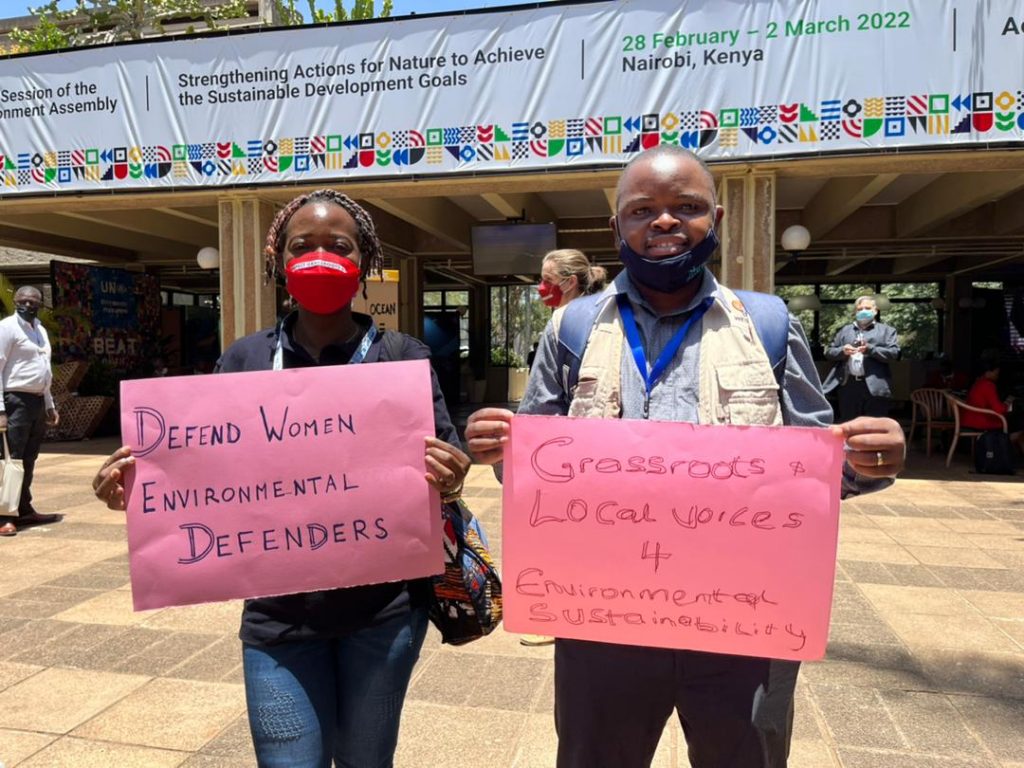 Session of the
onment Assembly
Strengthening Actions for Nature to Achieve
the Sustainable Development Goals
28 February – 2 March 2022
Nairobi, Kenya
UN
BEAT
OCEAN
DEFEND WOMEN
ENVIRONMENTAL
DEFENDERS
Grassroots &
Local voices
4
Environmental
Sustainability